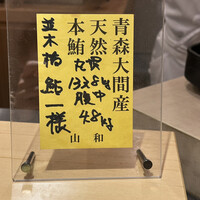 青森大間産
天然
本鮪
丸 132.8kg
腹中 4.8kg
山和
鮨一様